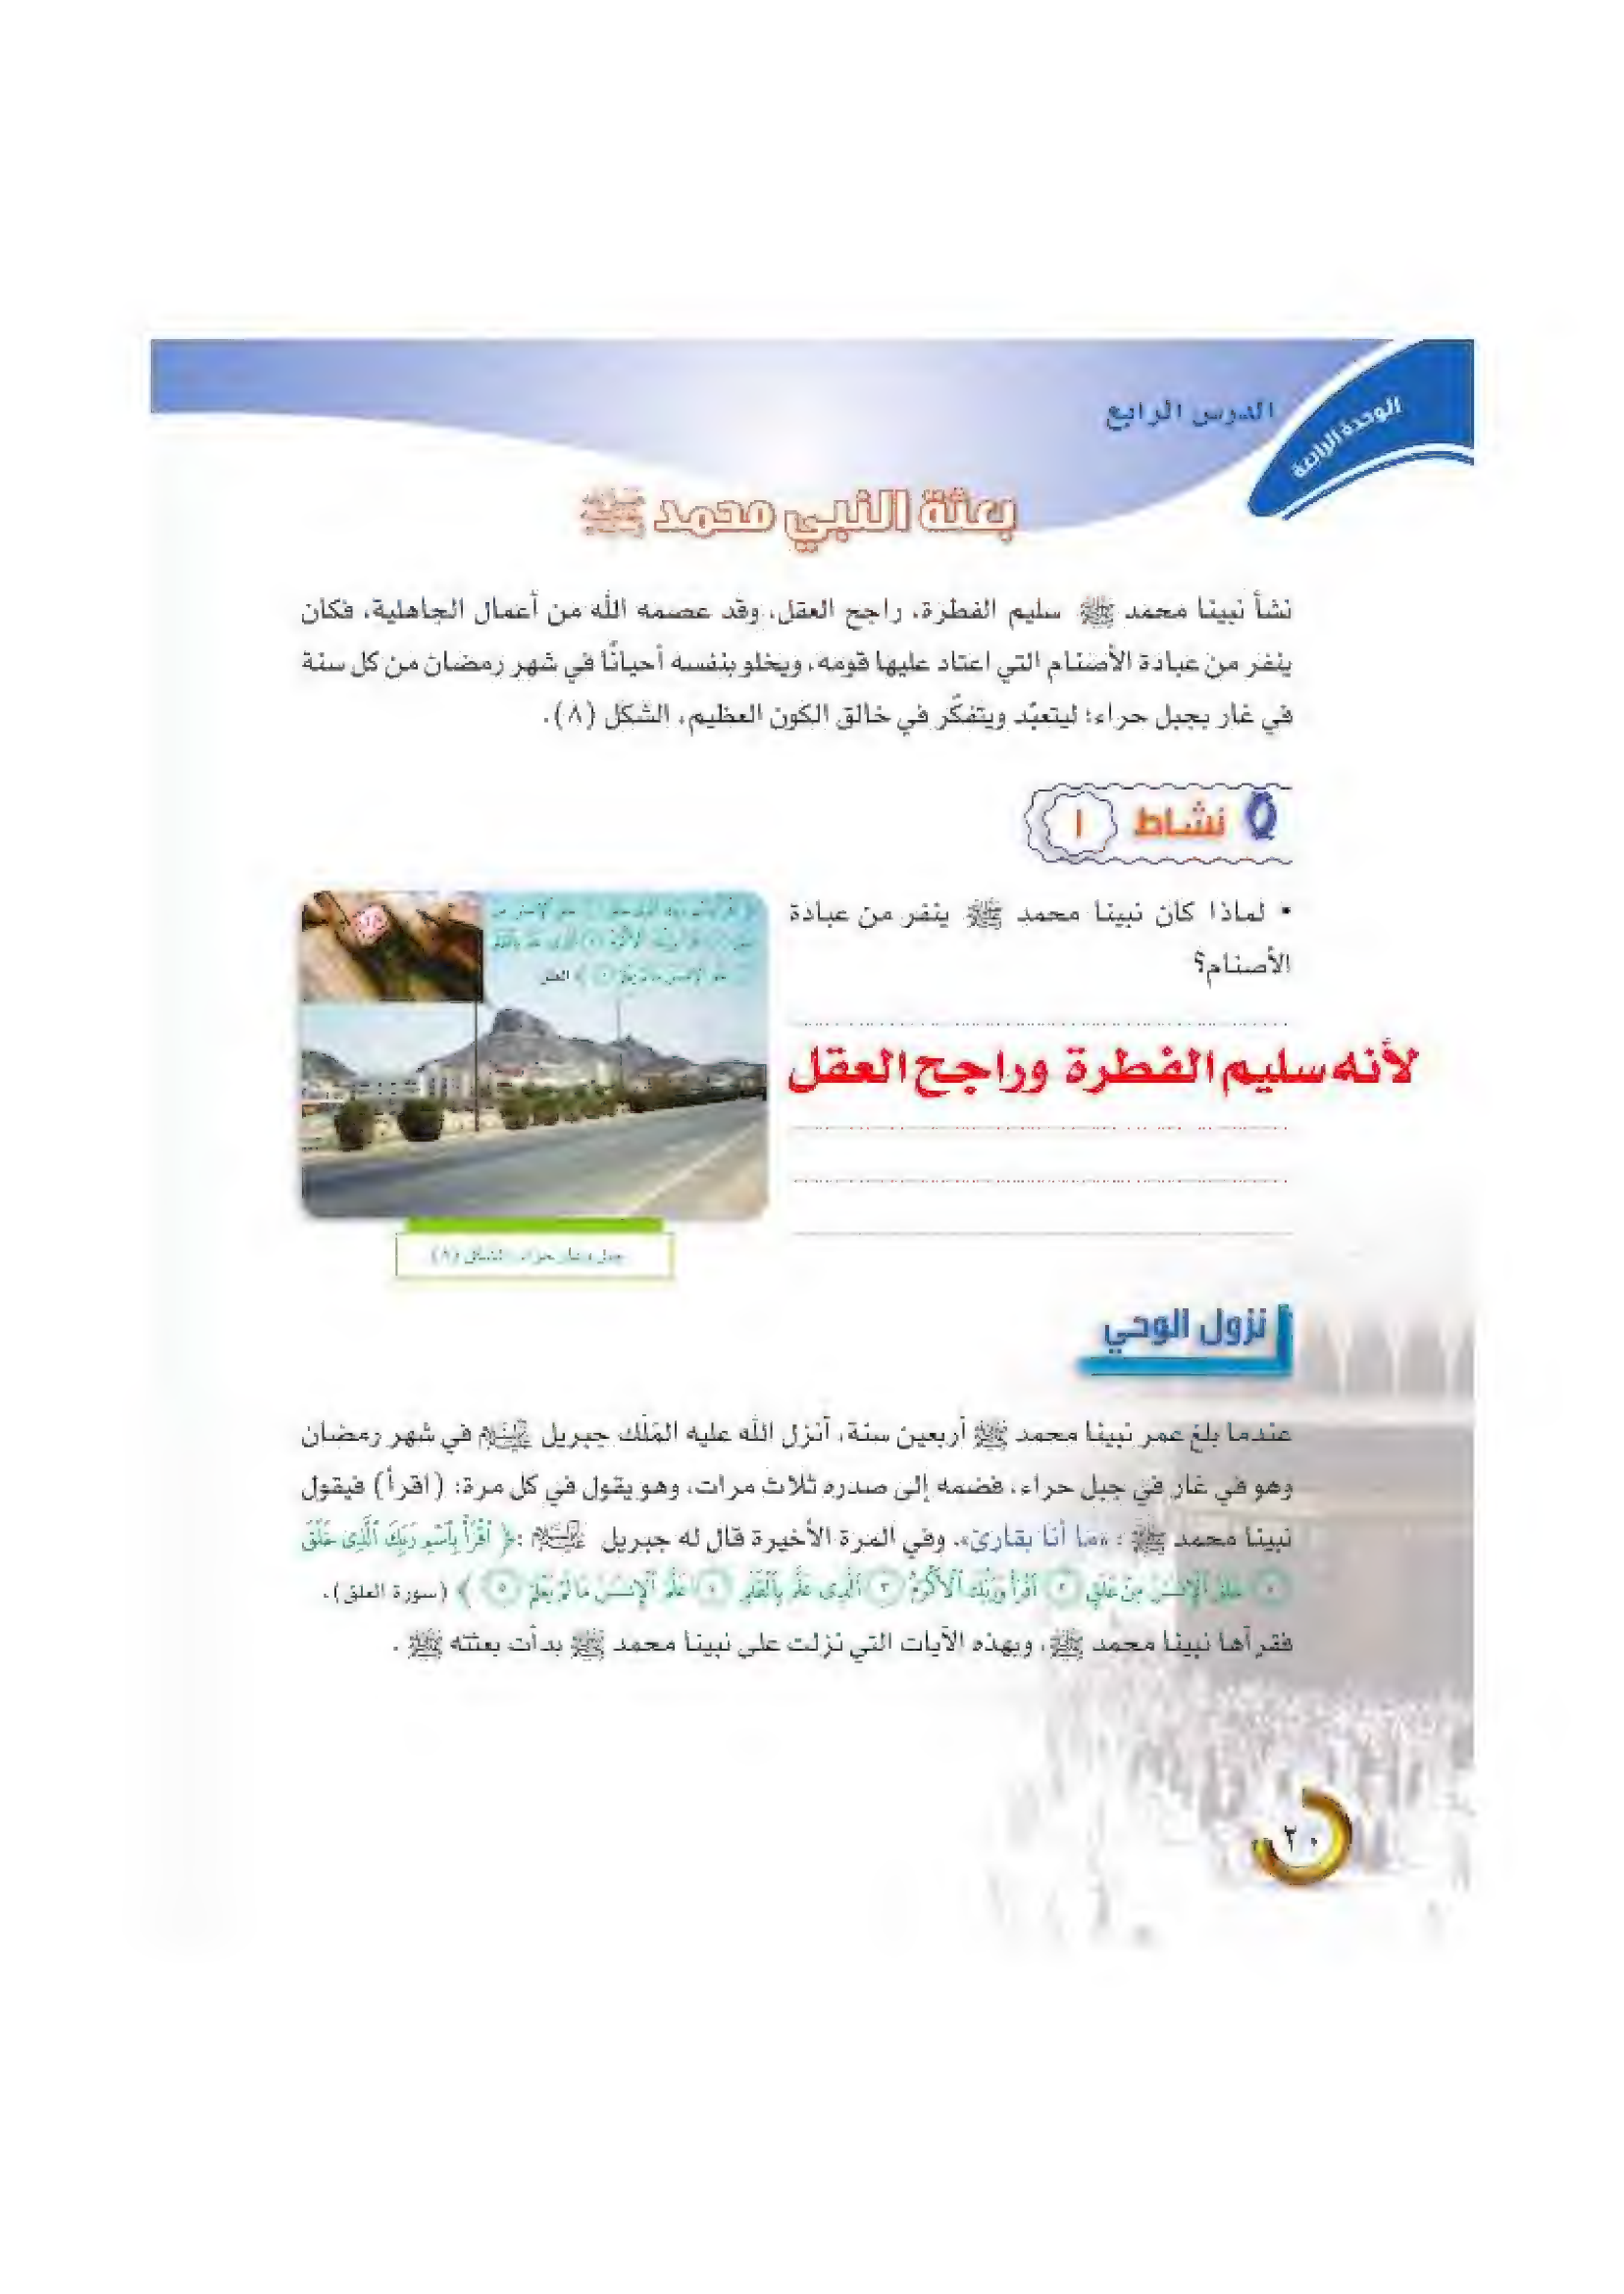 الوحدة الرابعة
الدرس الرابع
بعثة النبي محمد ﷺ
نشأ نبينا محمد ﷺ سليم الفطرة، راجح العقل، وقد عصمه الله من أعمال الجاهلية، فكان
ينفر من عبادة الأصنام التي اعتاد عليها قومه، ويخلو بنفسه أحيانًا في شهر رمضان من كل سنة
في غار بجبل حراء؛ ليتعبّد ويتفكّر في خالق الكون العظيم، الشكل (٨).
نشاط ١
• لماذا كان نبينا محمد ﷺ ينفر من عبادة
الأصنام؟
لأنه سليم الفطرة وراجح العقل
حراء الشكل (٨)
نزول الوحي
عندما بلغ عمر نبينا محمد ﷺ أربعين سنة، أنزل الله عليه المَلَك جبريل عليه السلام في شهر رمضان
وهو في غار في جبل حراء، فضمه إلى صدره ثلاث مرات، وهو يقول في كل مرة: (اقرأ) فيقول
نبينا محمد ﷺ : «ما أنا بقارئ»، وفي المرة الأخيرة قال له جبريل عليه السلام : ﴿ ٱقْرَأْ بِٱسْمِ رَبِّكَ ٱلَّذِى خَلَقَ
١ خَلَقَ ٱلْإِنسَٰنَ مِنْ عَلَقٍ ٢ ٱقْرَأْ وَرَبُّكَ ٱلْأَكْرَمُ ٣ ٱلَّذِى عَلَّمَ بِٱلْقَلَمِ ٤ عَلَّمَ ٱلْإِنسَٰنَ مَا لَمْ يَعْلَمْ ٥ ﴾ (سورة العلق).
فقرأها نبينا محمد ﷺ، وبهذه الآيات التي نزلت على نبينا محمد ﷺ بدأت بعثته ﷺ .
٢٠